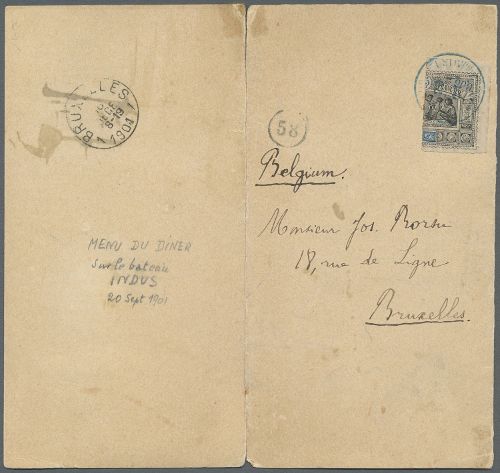 BRUXELLES
1901
MENU DU DÎNER
sur le bateau
INDUS
20 Sept 1901
58
Belgium.
Monsieur Jos.
18, rue de Ligne
Bruxelles